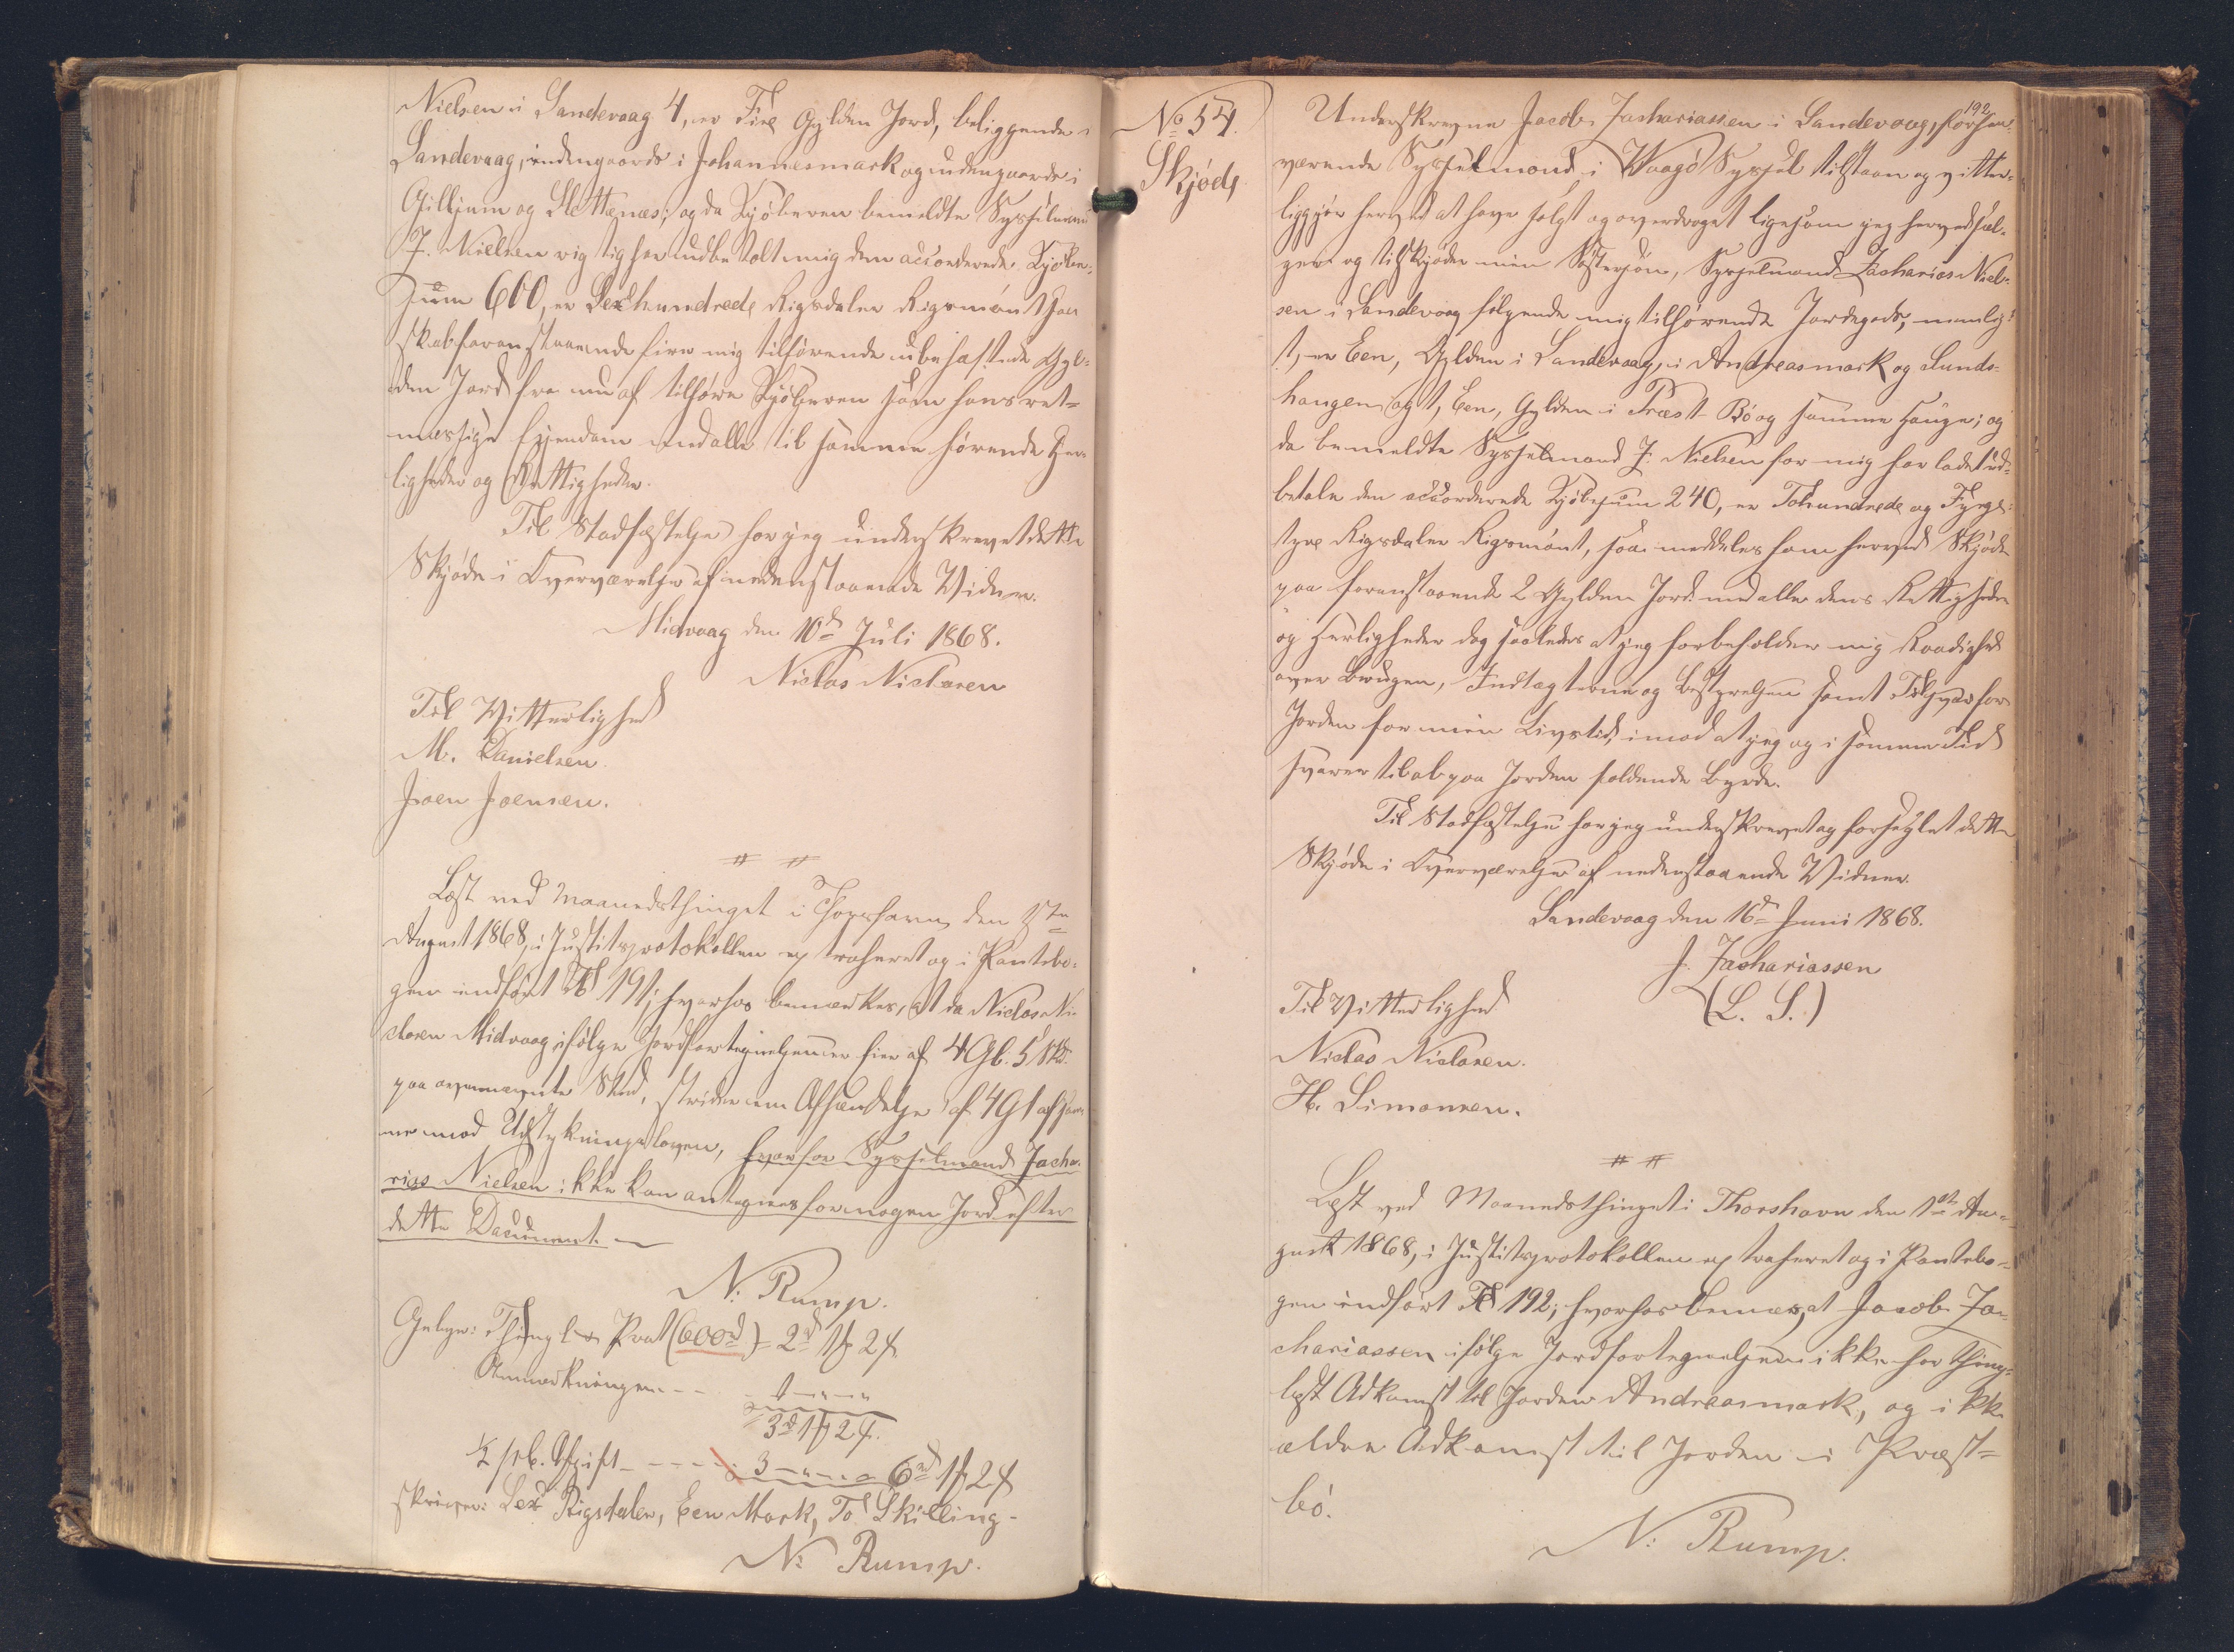 Nielsen i Sandevaag 4, er Fire Gylden Jord, beliggende i
Sandevaag, indengaards i Johannesmark og udengaards i
Gilljum og Slettenæs; og da Kjøberen bemeldte Sysselmand
Z. Nielsen rigtig har udbetalt mig den accorderede Kjøbe-
sum 600, er Sexhundrede Rigsdaler Rigsmønt saa
skal foranstaaende fire mig tilhørende ubehæftede Gyl-
den Jord fra nu af tilhøre Kjøberen som hans ret-
mæssige Eiendom med alle til samme hørende Her-
ligheder og Rettigheder.
Til Stadfæstelse har jeg underskrevet dette
Skjøde i Overværelse af nedenstaaende Vidner.
Midvaag den 10de Juli 1868.
Niclas Niclasen
Til Vitterlighed
M. Danielsen.
Joen Joensen.
Læst ved Maanedsthinget i Thorshavn den 1ste
August 1868, i Justitsprotokollen extraheret og i Pantebo-
gen indført Fol 191; hvorhos bemærkes, at da Niclas Ni-
clasen Midvaag ifølge Jordfortegnelsen er Eier af 4 Gl. 5 Skd.
paa ovennævnte Sted, strider en Afhændelse af 4 Gl af sam-
me mod Udstykningsloven, hvorfor Sysselmand Zacha-
rias Nielsen ikke kan antegnes for nogen Jord efter
dette Document.
N: Rump.
Gebyr: Thingl. & Prot (600rd) = 2rd 1 mk 2 s
Anmærkningen - - - 1 - " - "
3rd 1 mk 2 s.
½ pCt. Afgift - - - - 3 - " - " 6rd 1 mk 2 s
skriver: Sex Rigsdaler, Een Mark, To Skilling -
N: Rump.
192
No 54.
Skjøde
Underskrevne Jacob Zachariassen i Sandevaag, forhen-
værende Sysselmand i Waagø Syssel tilstaar og vitter-
liggjør herved at have solgt og overdraget ligesom jeg herved sæl-
ger og tilskjøder min Søstersøn, Sysselmand Zacharias Niel-
sen i Sandevaag følgende mig tilhørende Jordegods, nemlig:
1, er Een, Gylden i Sandevaag, i Andreasmark og Lunds-
haugen og 1, Een, Gylden i Præst-Bø og samme Hauge; og
da bemeldte Sysselmand Z. Nielsen for mig har ladet ud-
betale den accorderede Kjøbesum 240, er Tohundrede og Fyrge-
tyve Rigsdaler Rigsmønt, saa meddeles ham herved Skjøde
paa foranstaaende 2 Gylden Jord med alle dens Rettigheder
og Herligheder dog saaledes at jeg forbeholder mig Raadighed
over Brugen, Indtægterne og Bestyrelsen samt Tilsyn for
Jorden for min Livstid, imod at jeg og i samme Tid
svarer til al paa Jorden faldende Byrde.
Til Stadfæstelse har jeg underskrevet og forseglet dette
Skjøde i Overværelse af nedenstaaende Vidner.
Sandevaag den 16de Juni 1868.
J. Zachariassen
(L. S.)
Til Vitterlighed
Niclas Niclasen.
H. Simonsen.
Læst ved Maanedsthinget i Thorshavn den 1ste Au-
gust 1868, i Justitsprotokollen extraheret og i Pantebo-
gen indført Fol 192; hvorhos bemærkes, at Jacob Za-
chariassen ifølge Jordfortegnelsen ikke har thing-
læst Adkomst til Jorden Andreasmark, og ikke
ældre Adkomst til Jorden i Præst-
bø.
N: Rump.